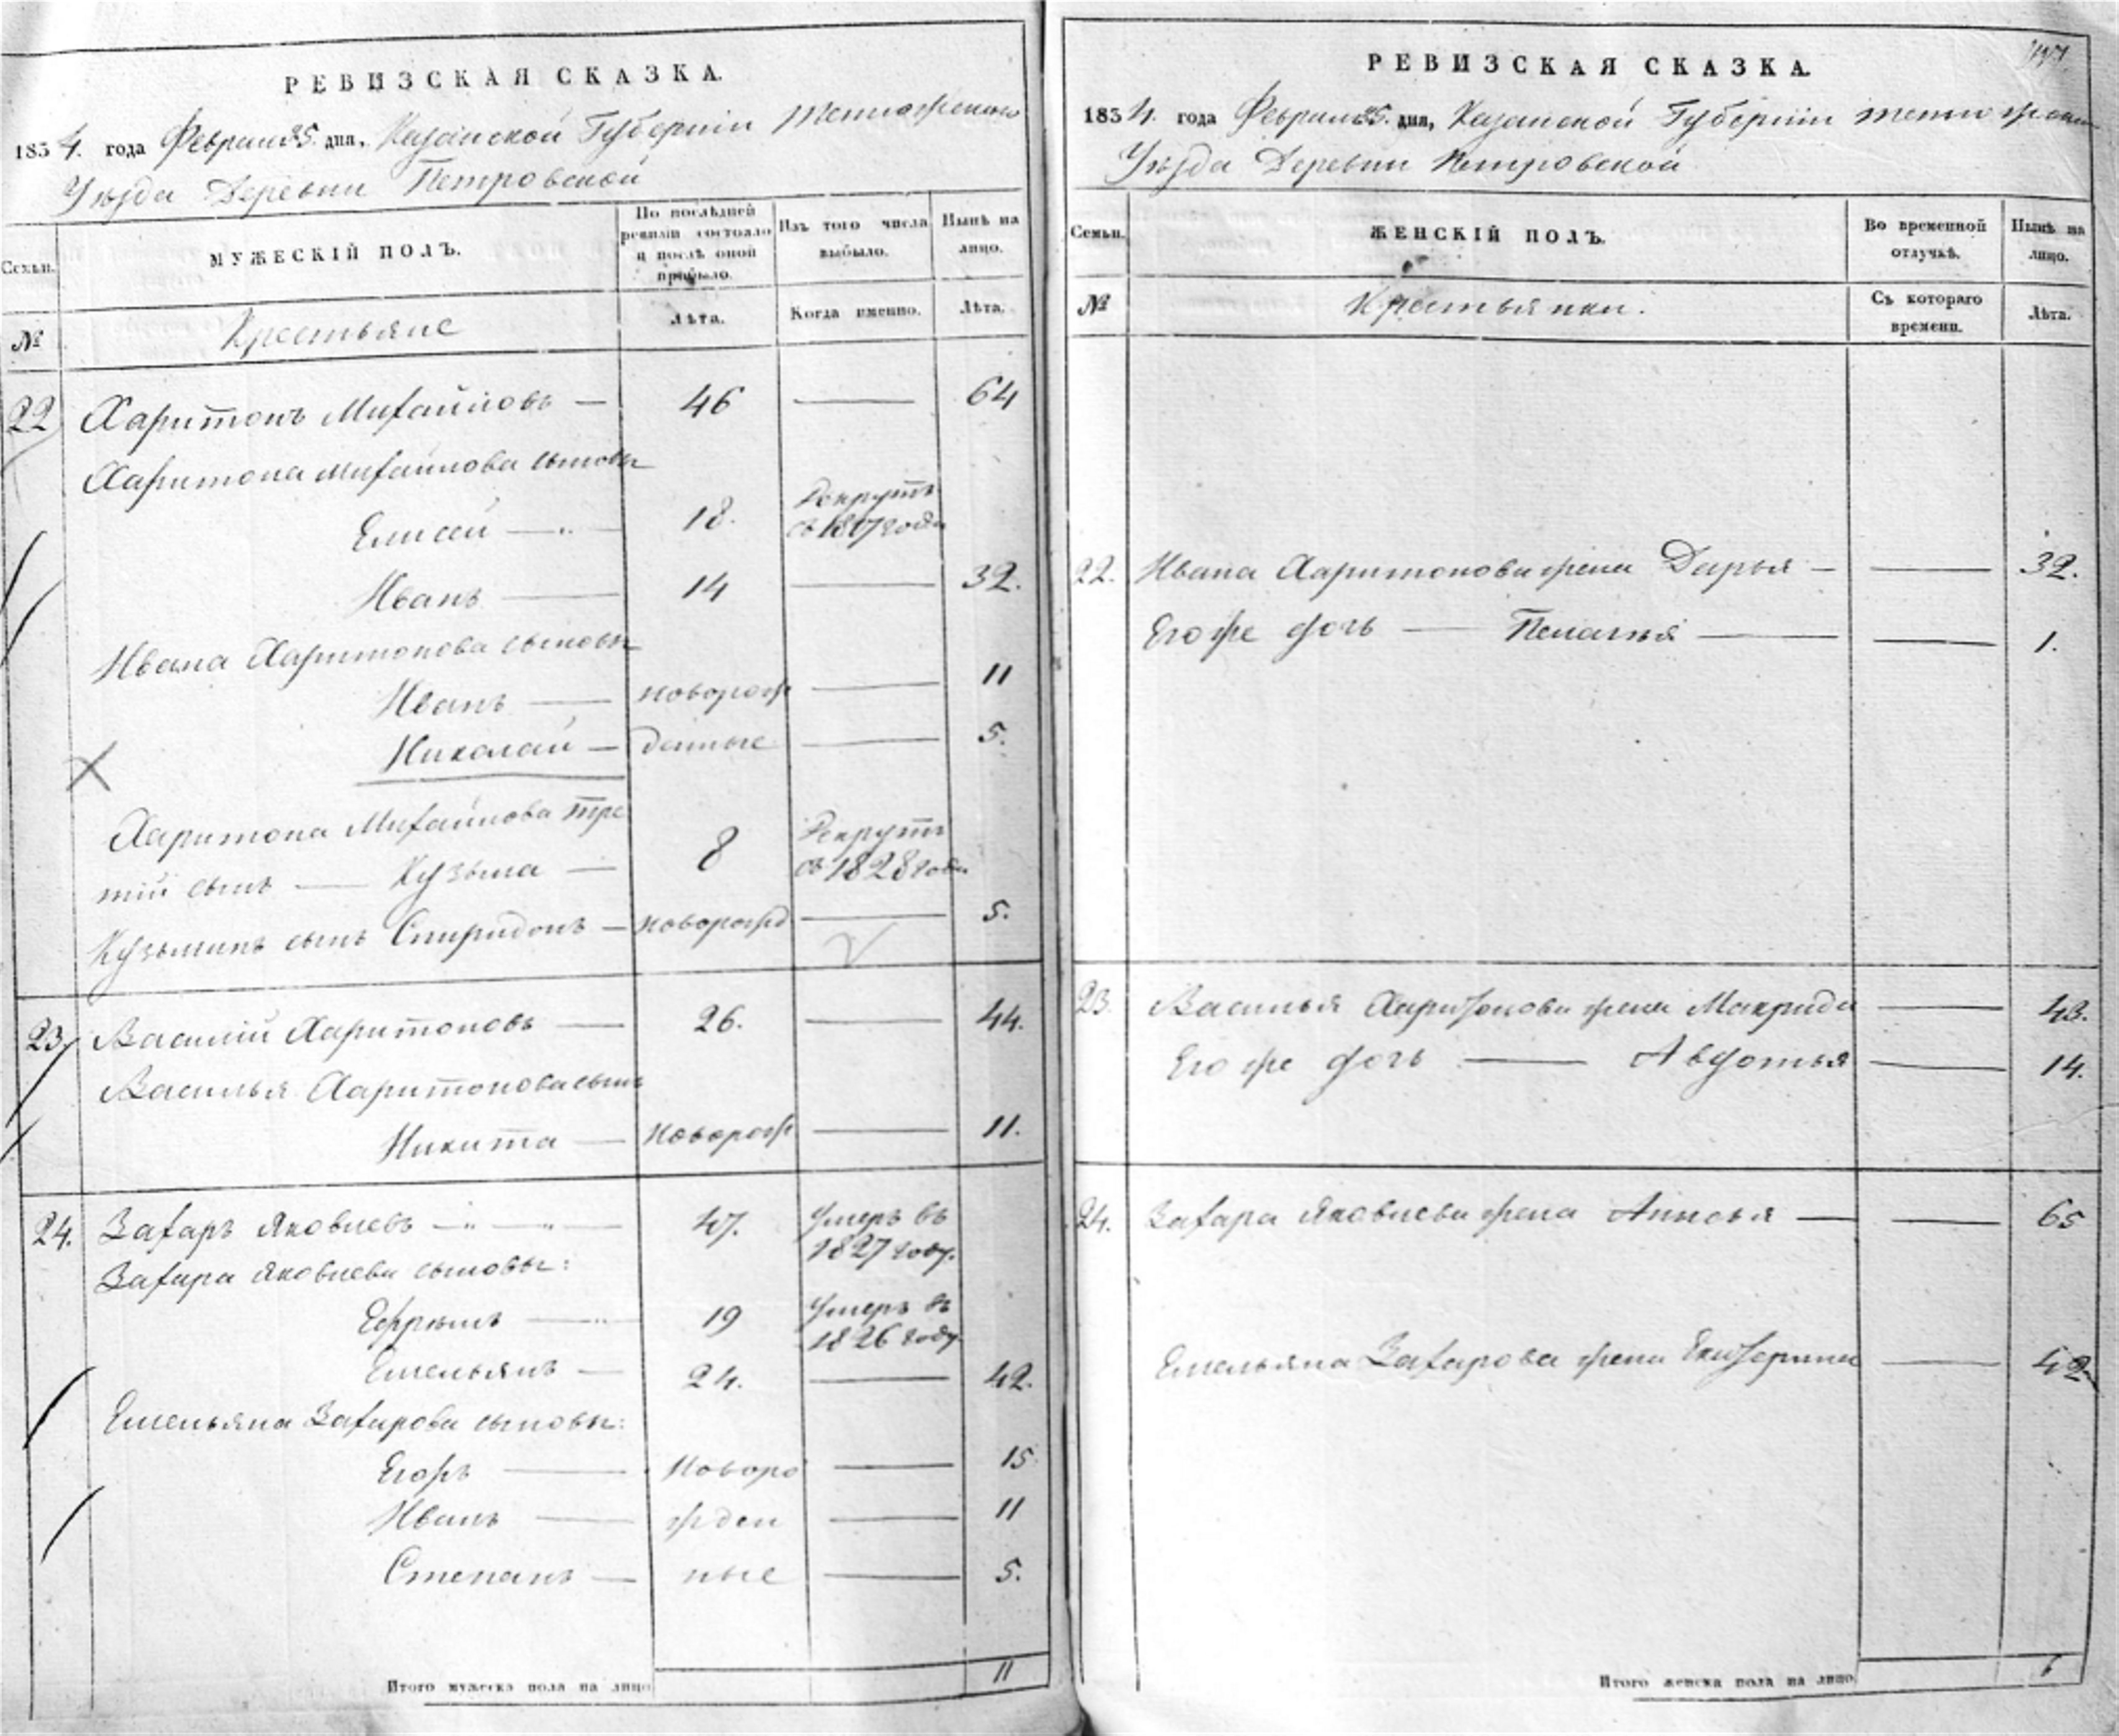 РЕВИЗСКАЯ СКАЗКА.
1834. года Февраля 25. дня, Казанской Губерніи Тетюшскаго
Уѣзда Деревни Петровской
Семьи.
МУЖЕСКІЙ ПОЛЪ.
По послѣдней
ревизіи состояло
и послѣ оной
прибыло.
Изъ того числа
выбыло.
Нынѣ на
лицо.
№
Крестьяне
Лѣта.
Когда именно.
Лѣта.
22 Харитонъ Михайловъ — 46 — 64
Харитона Михайлова сыновья
Елисей — 18. Рекрутъ
съ 1817 года
Иванъ — 14 — 32.
Ивана Харитонова сыновья
Иванъ — новорож — 11
Николай — денные — 5.
Харитона Михайлова тре
тій сынъ — Кузьма — 8 Рекрутъ
съ 1828 года
Кузьминъ сынъ Спиридонъ — новорожд — 5.
23 Василій Харитоновъ — 26. — 44.
Василья Харитонова сынъ
Никита — Новорож — 11.
24. Захаръ Яковлевъ — 47. Умеръ въ
1827 году.
Захара Яковлева сыновья:
Ефремъ — 19 Умеръ въ
1826 году
Емельянъ — 24. — 42.
Емельяна Захарова сыновья:
Егоръ — Новоро — 15
Иванъ — жден — 11
Степанъ — ные — 5.
Итого мужеска пола на лицо 11
РЕВИЗСКАЯ СКАЗКА.
1834. года Февраля 25. дня, Казанской Губерніи
Уѣзда Деревни Петровской
Семьи.
ЖЕНСКІЙ ПОЛЪ.
Во временной
отлучкѣ.
Нынѣ на
лицо.
№
Крестьянки.
Съ котораго
времени.
Лѣта.
22. Ивана Харитонова жена Дарья — — 32.
Его же дочь — Пелагья — — 1.
23. Василья Харитонова жена Макрида — 43.
Его же дочь — Авдотья — 14.
24. Захара Яковлева жена — — 65
Емельяна Захарова жена Екатерина — 42
Итого женска пола на лицо 6